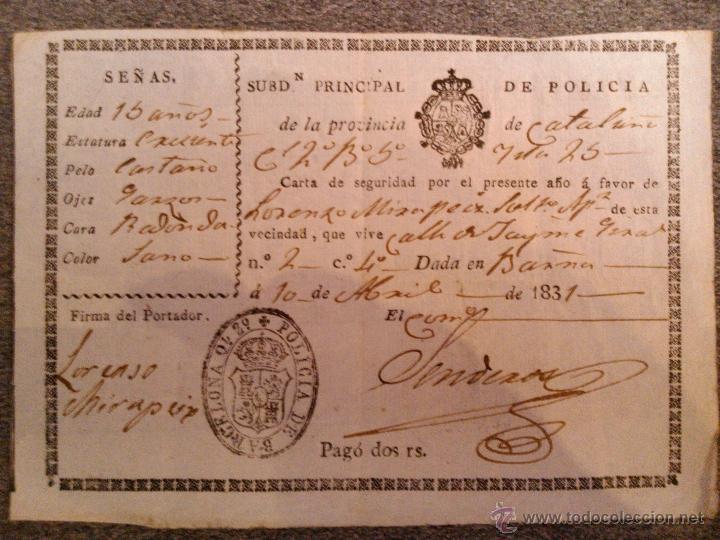 SEÑAS.
Edad 15 años
Estatura Creciente
Pelo Castaño
Ojos Garzos
Cara Redonda
Color Sano
Firma del Portador.
Lorenso
Mirapeix
SUBD.N PRINCIPAL DE POLICIA
de la provincia de Cataluña
C 12º Bº 5º 25
Carta de seguridad por el presente año á favor de
Lorenzo Mirapeix Solt.º de esta
vecindad, que vive Calle de Jayme
n.º 2 c.º 4º Dada en Barna
á 10 de Abril de 1831
El
Pagó dos rs.
POLICIA DE BARCELONA
www.todocoleccion.net